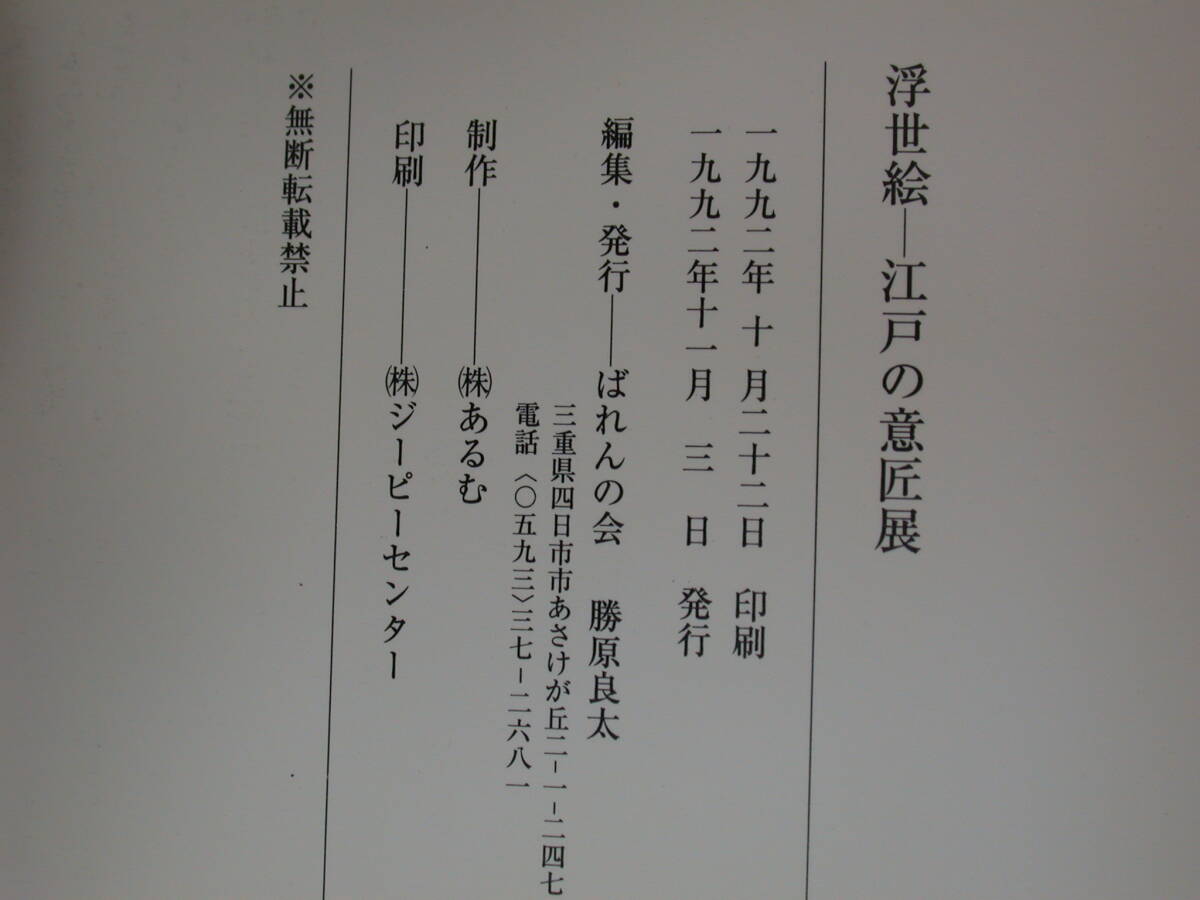 浮世絵―江戸の意匠展
一九九二年 十 月二十二日 印刷
一九九二年十一月 三 日 発行
編集・発行――ばれんの会 勝原良太
三重県四日市市あさけが丘二－一－二四七
電話〈〇五九三〉三七－二六八一
制作――――㈱あるむ
印刷――――㈱ジーピーセンター
※無断転載禁止